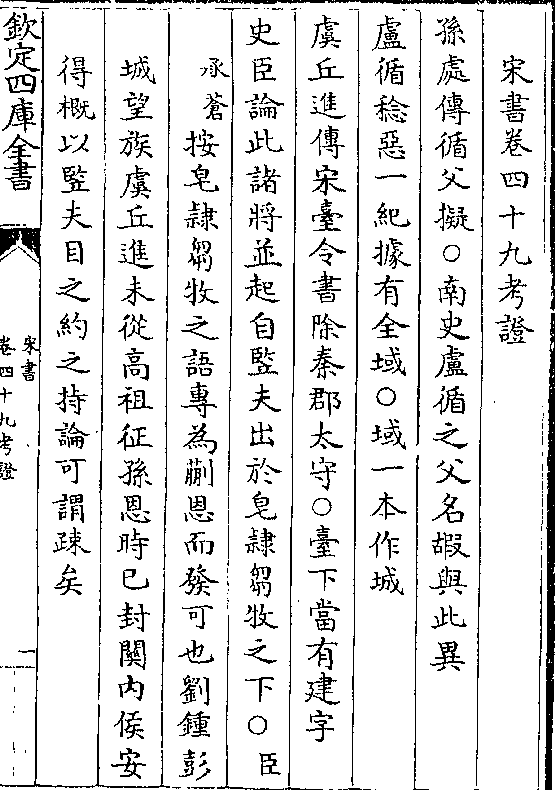 宋書卷四十九考證
孫處傳循父擬○南史盧循之父名嘏與此異
盧循稔惡一紀據有全域○域一本作城
虞丘進傳宋臺令書除秦郡太守○臺下當有建字
史臣論此諸將並起自監夫出於皁隷芻牧之下○臣
承蒼按皂隷芻牧之語專為蒯恩而發可也劉鍾彭
城望族虞丘進未從高祖征孫恩時已封關内侯安
得概以監夫目之約之持論可謂疎矣
欽定四庫全書
宋書
卷四十九考證
一